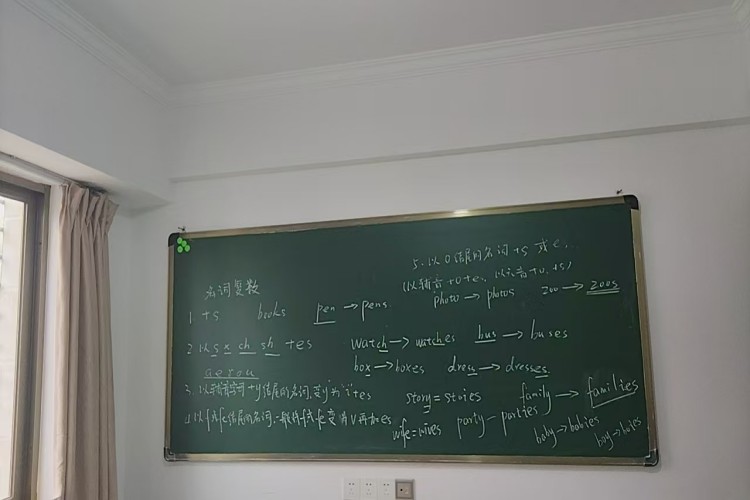 名词复数
1. +s books pen → pens
2. 以 s x ch sh +es watch → watches bus → buses
box → boxes dress → dresses
aeiou
3. 以辅音字母+y结尾的名词,变"y"为"i"+es story = stories family → families
4. 以f或fe结尾的名词,一般将f或fe变为v再加es wife = wives party - parties
baby → babies boy → boies
5. 以o结尾的名词+s 或 e.
(以辅音+o+e, 以元音+o, +s)
photo → photos zoo → zoos